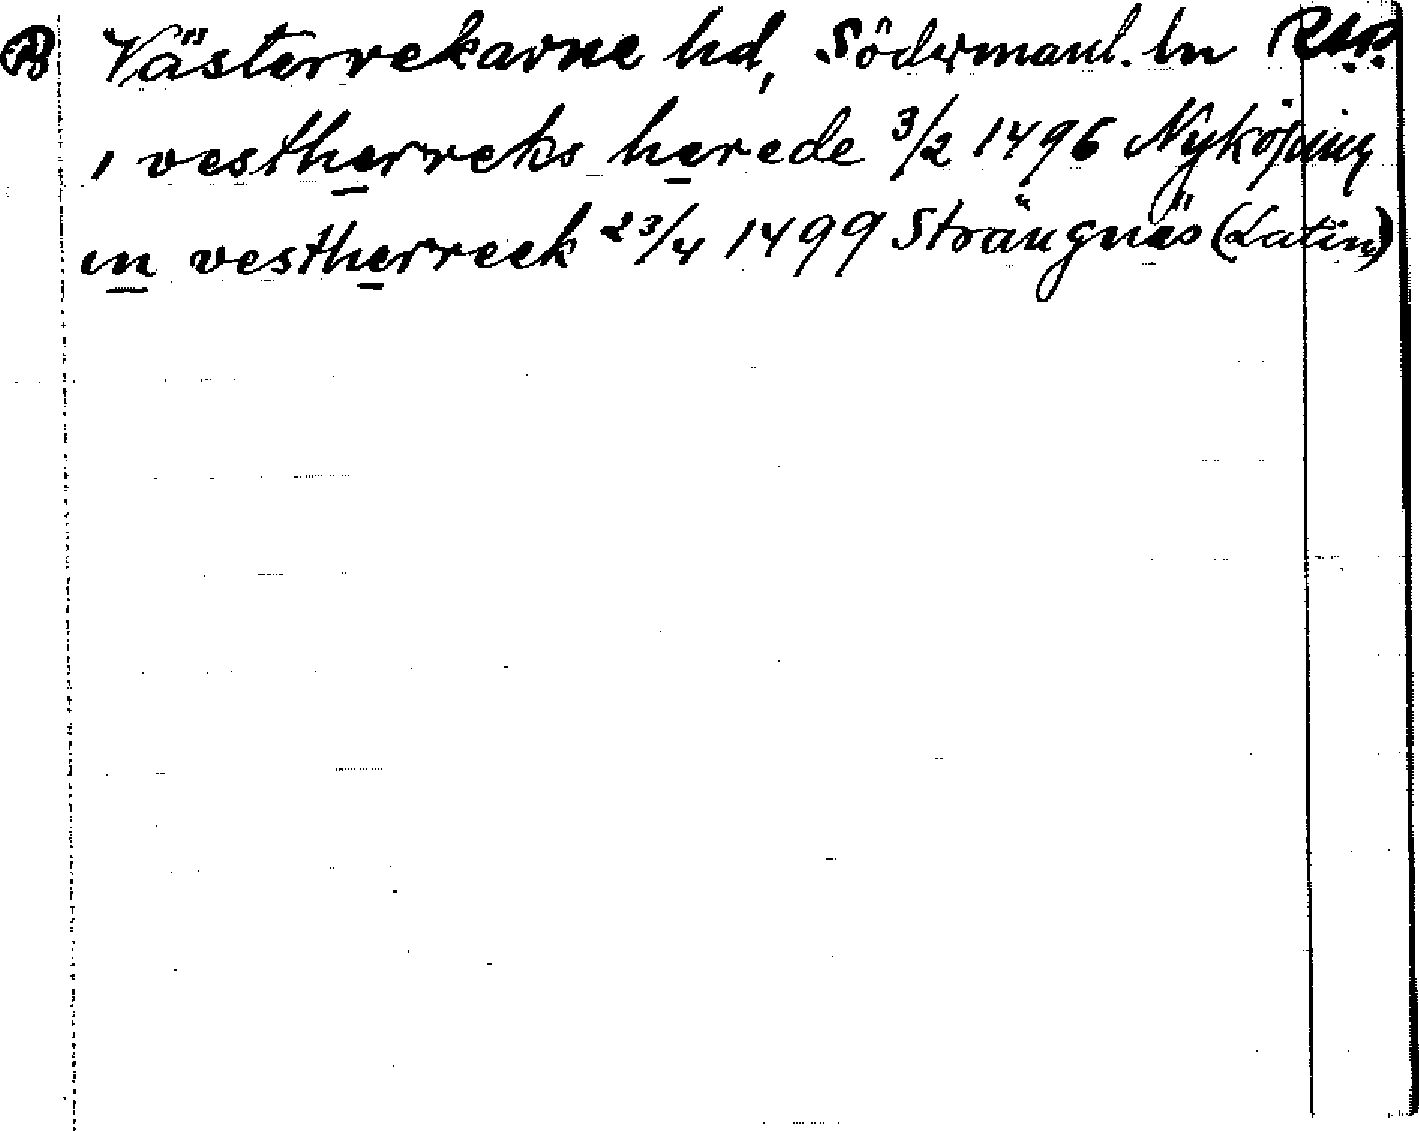 Västerrekarne hd, Södermanl. ln RAp.
i vestherreks herede 3/2 1496 Nyköping
in vestherreek 23/4 1499 Strängnäs (Latin)